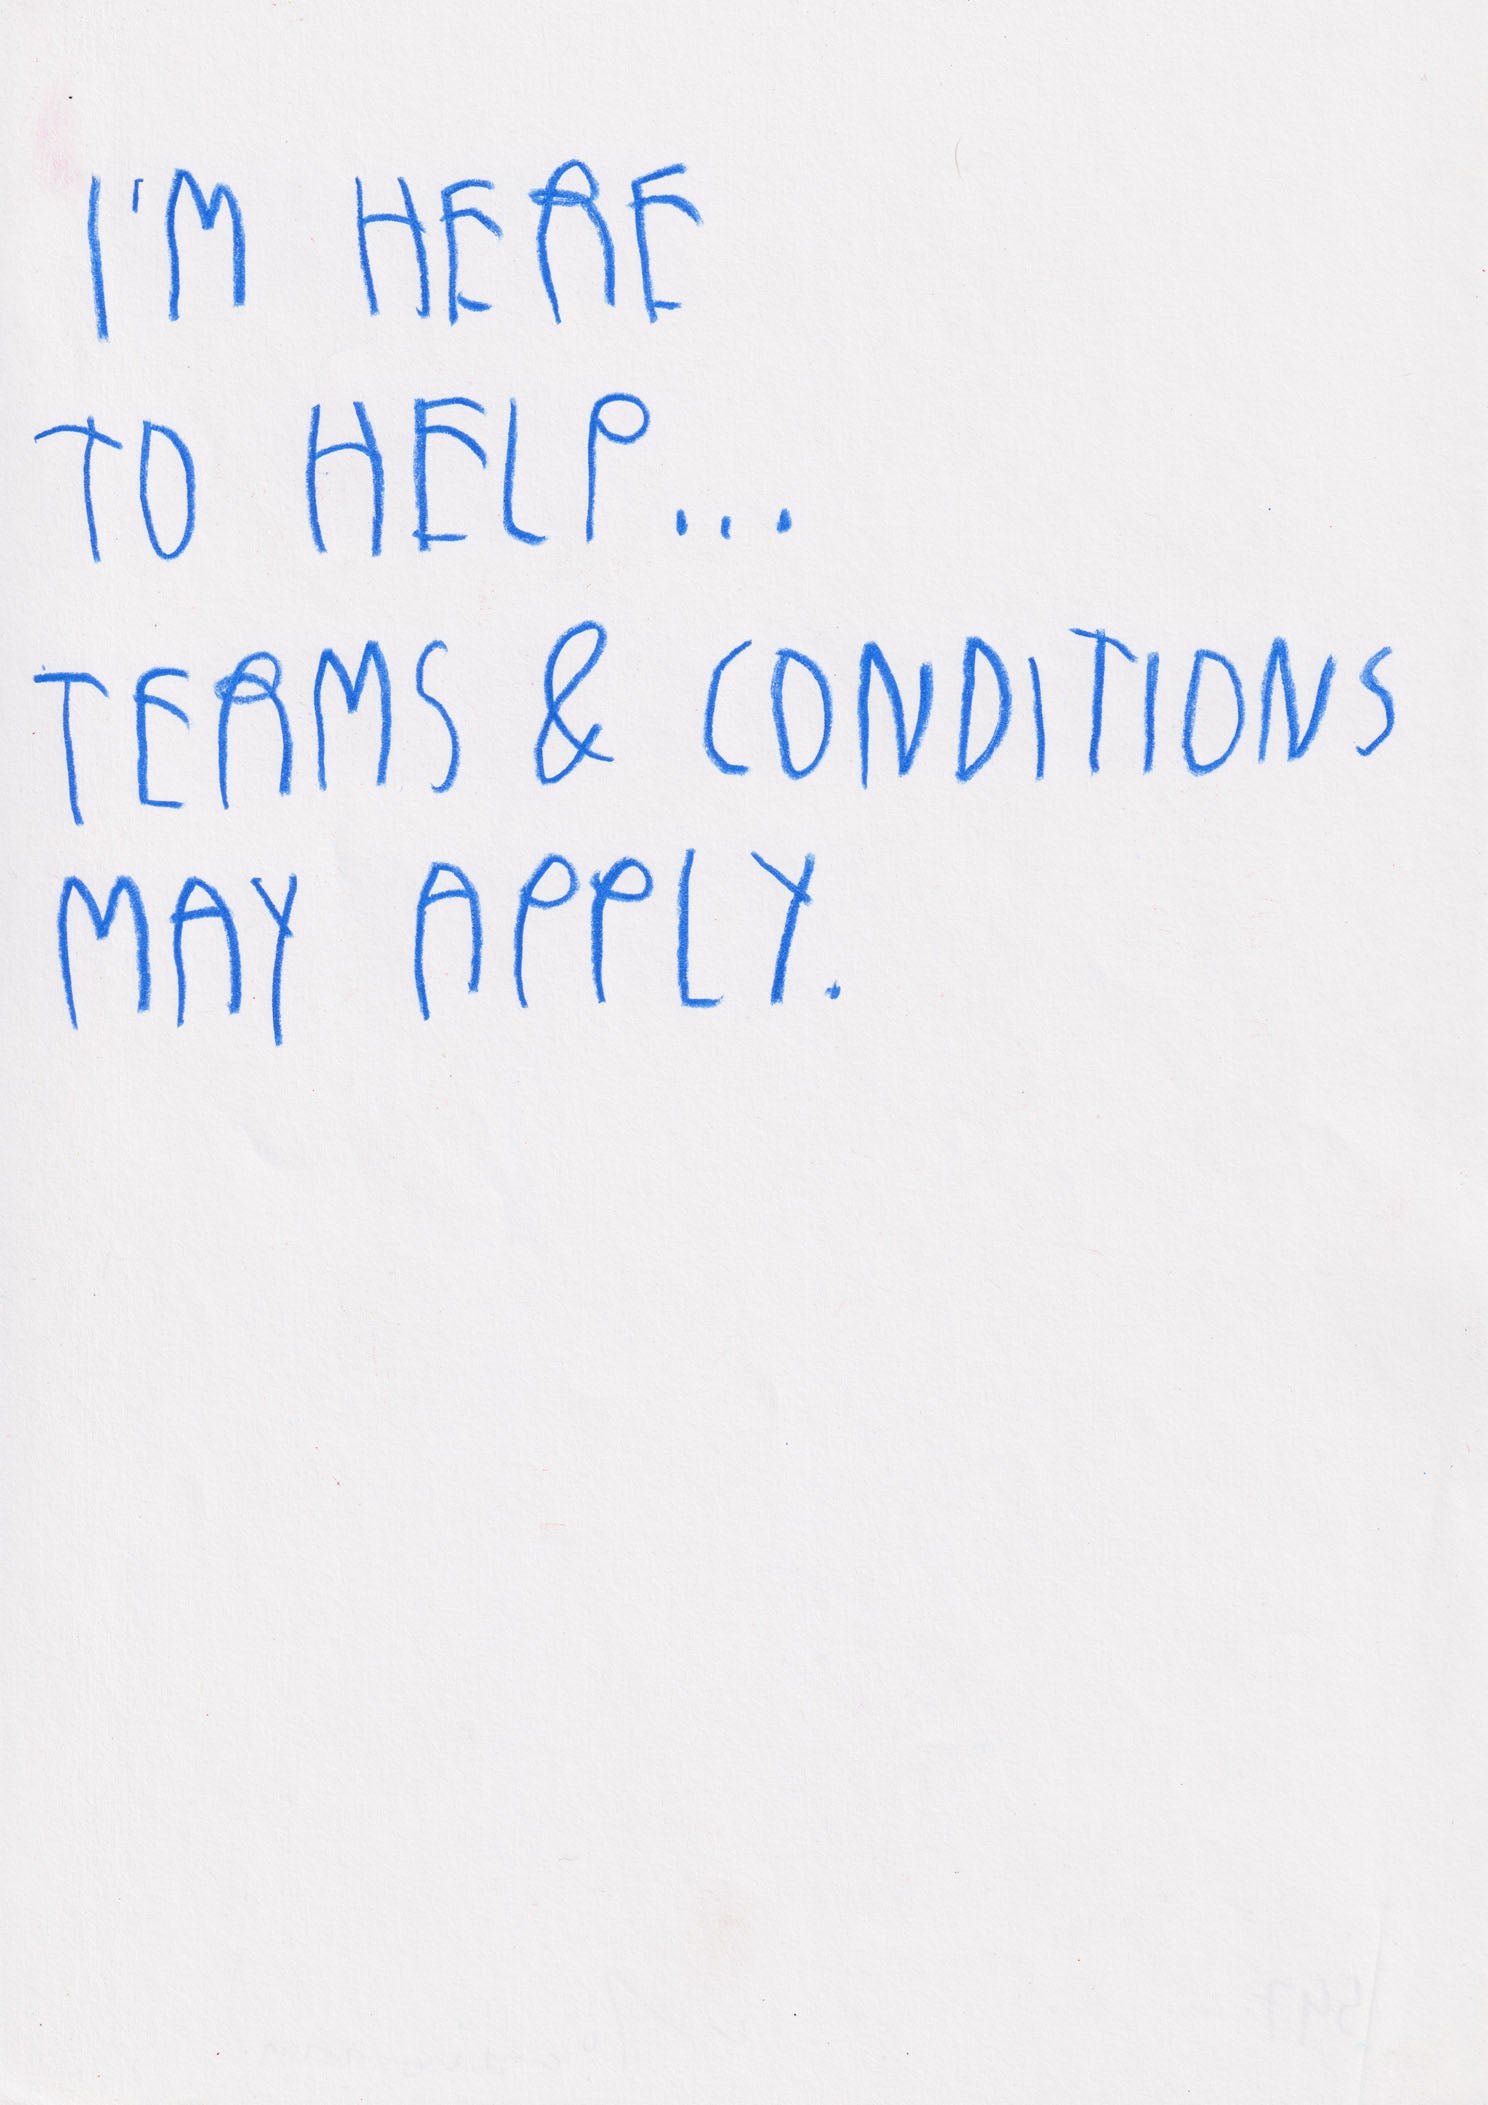 I'M HERE
TO HELP...
TERMS & CONDITIONS
MAY APPLY.